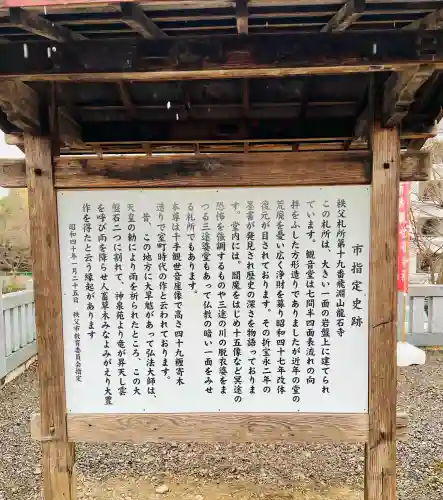 市指定史跡
秩父札所第十九番飛淵山龍石寺
この札所は、大きい一面の岩盤上に建てられ
ています。観音堂は七間半四面表流れの向
拝をふした方形造りでありましたが近年の堂の
荒廃を憂い広く浄財を募り昭和四十七年改体
復元が目されております。その折宝永二年の
墨書が発見され歴史の深さを物語っておりま
す。堂内には、閻魔をはじめ十五像など冥途の
恐怖を強調するものや三途の川の脱衣婆をま
つる三途婆堂もあって仏教の暗い一面をみせ
る札所でもあります。
本尊は千手観世音座像で高さ四十九糎寄木
造りで室町時代の作といわれております。
昔、この地方に大旱魃があって弘法大師は、
天皇の勅により雨を祈られたところ、この大
盤石二つに割れて、神泉苑より竜が昇天し雲
を呼び雨を降らせ人畜草木みなよみがえり大豊
作を得たと云う縁起があります
昭和四十年一月二十五日 秩父市教育委員会指定